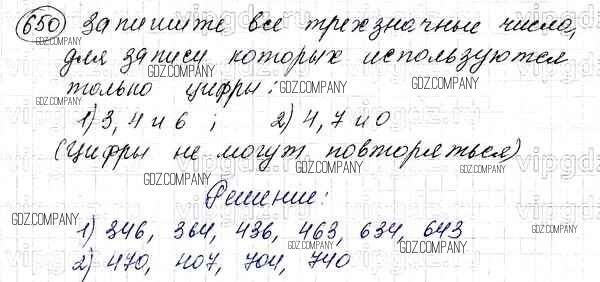 650 Запишите все трехзначные числа,
для записи которых используются
только цифры:
1) 3, 4 и 6 ; 2) 4, 7 и 0
(Цифры не могут повторяться)
Решение:
1) 346, 364, 436, 463, 634, 643
2) 470, 407, 704, 740
GDZ.COMPANY
GDZ.COMPANY
GDZ.COMPANY
GDZ.COMPANY
GDZ.COMPANY
GDZ.COMPANY
GDZ.COMPANY
GDZ.COMPANY
GDZ.COMPANY
GDZ.COMPANY
GDZ.COMPANY
GDZ.COMPANY